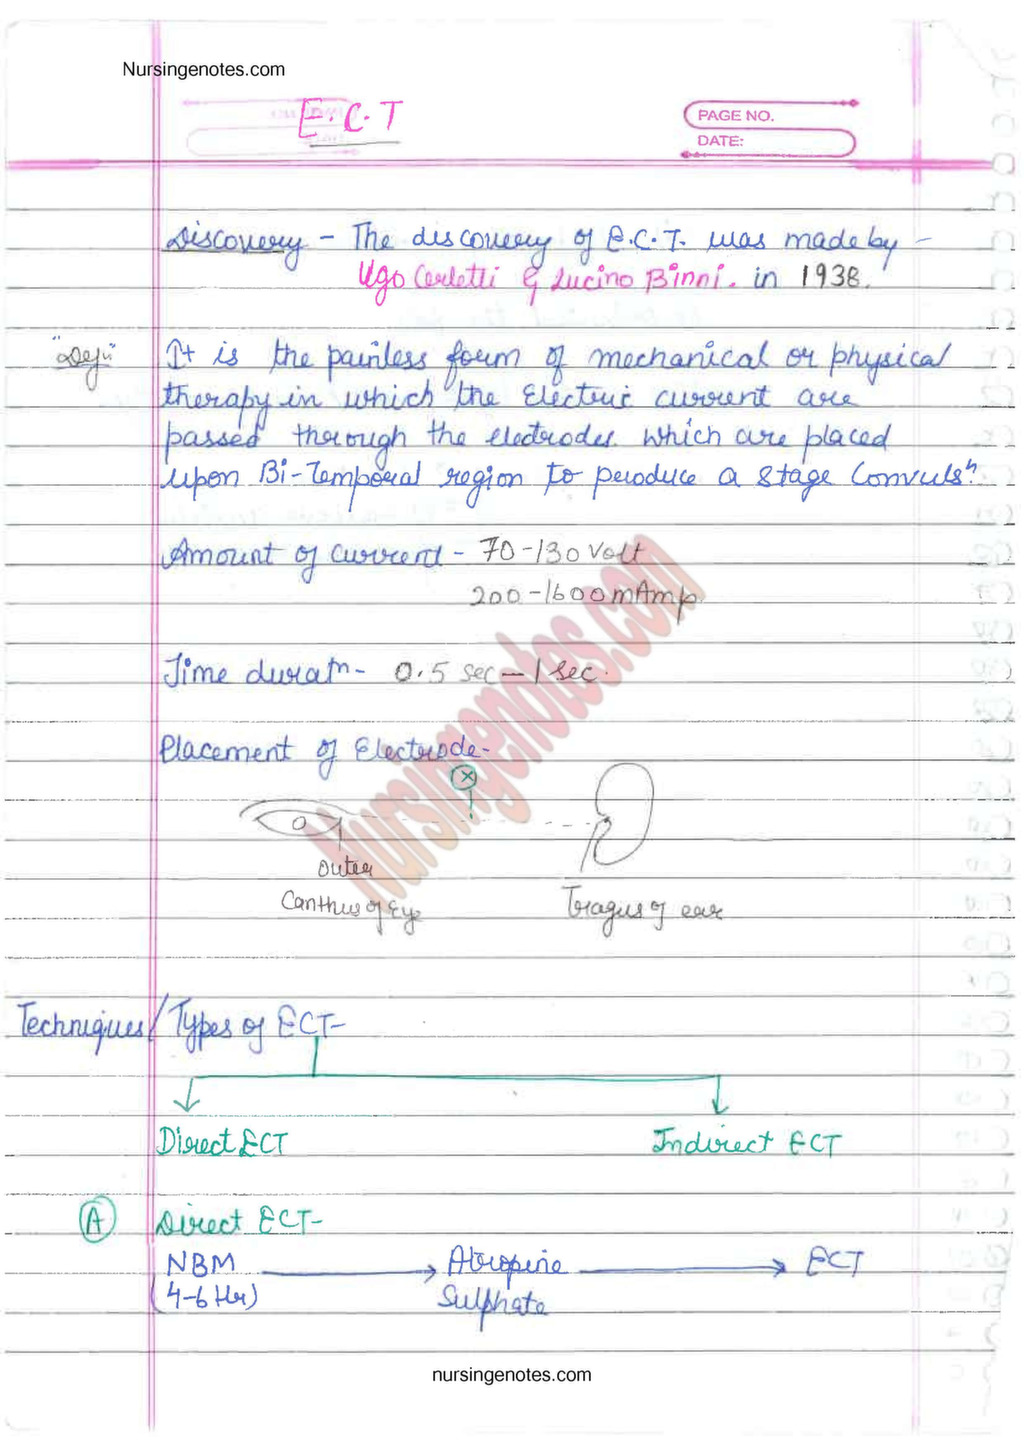 Nursingenotes.com
E.C.T
PAGE NO.
DATE:
Discovery - The discovery of E.C.T. was made by -
Ugo Cerletti & Lucino Binni. in 1938.
"Defn" It is the painless form of mechanical or physical
therapy in which the Electric current are
passed through the electrodes which are placed
upon Bi-Temporal region to produce a stage Convulsn.
Amount of current - 70-130 Volt
200-1600 mAmp.
Time duratn - 0.5 sec - 1 sec.
Placement of Electrode-
Outer
Canthus of Eye
Tragus of ear
Techniques/Types of ECT-
Direct ECT Indirect ECT
(A) Direct ECT-
NBM → Atropine → ECT
(4-6 Hr) Sulphate
nursingenotes.com
Nursingenotes.com